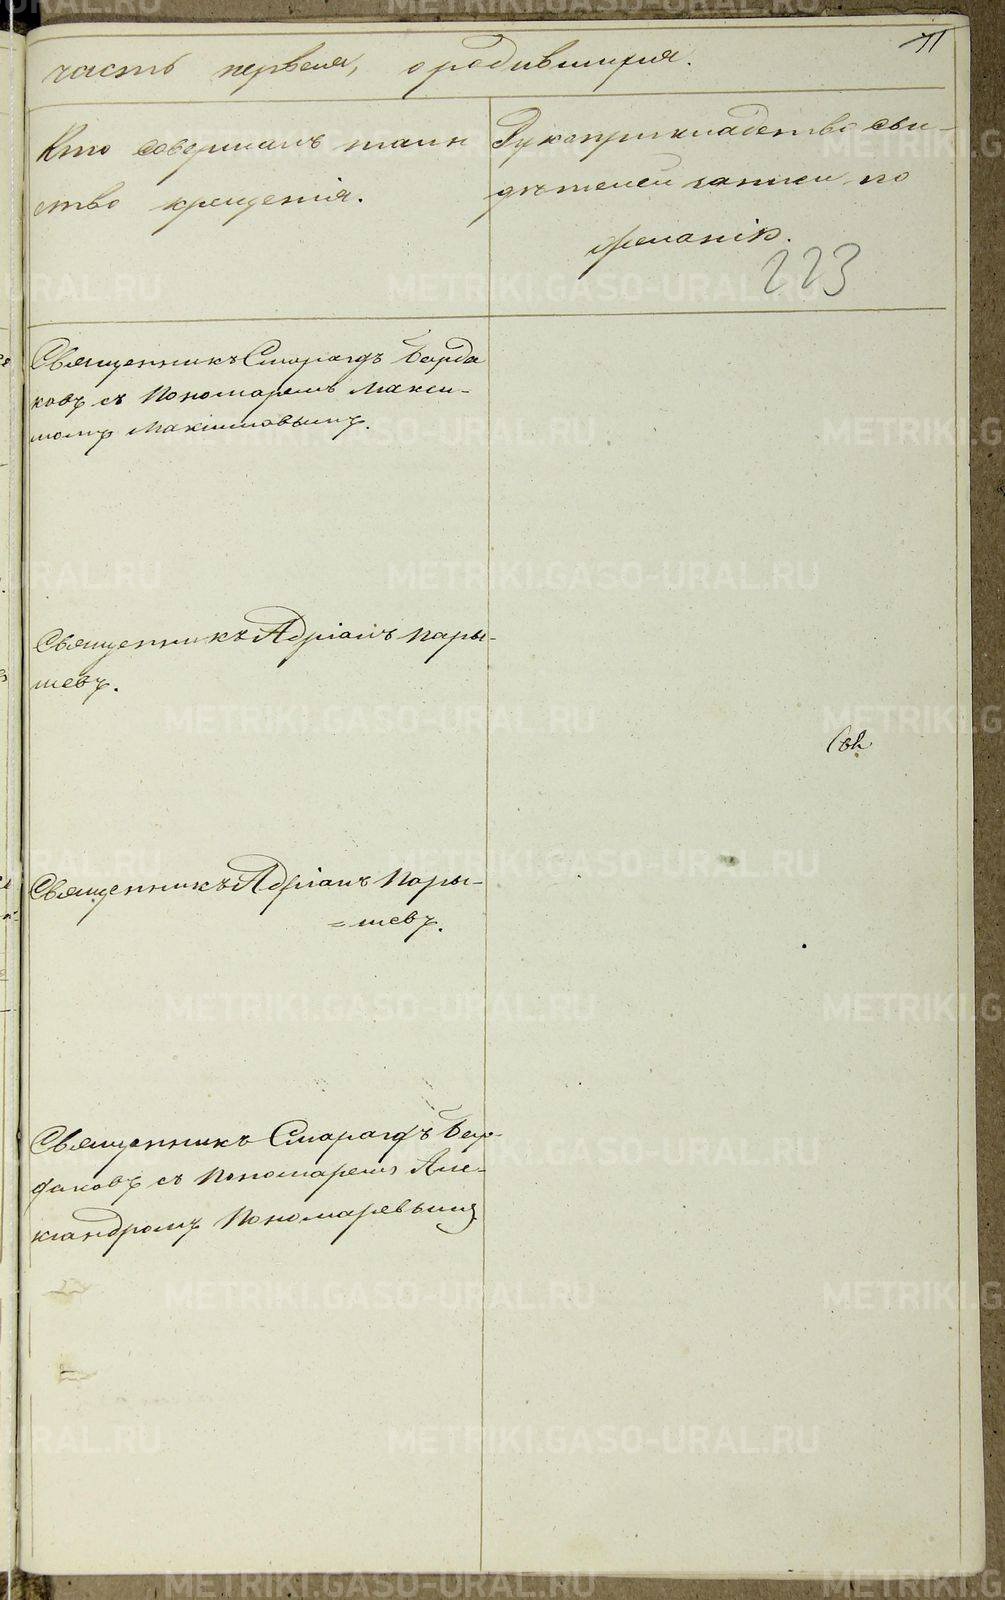 71
часть первая, о родившихся.
Кто совершалъ таин
ство крещенія.
Рукоприкладство сви-
дѣтелей записи по
желанію.
223
Священникъ Смарагдъ Бурда
ковъ съ Пономаремъ Макси-
момъ Максимовымъ.
Священникъ Адріанъ Пары-
шевъ.
Священникъ Адріанъ Пары-
=шевъ.
Священникъ Смарагдъ Бур-
даковъ съ Пономаремъ Але-
ксандромъ Пономаревымъ
METRIKI.GASO-URAL.RU